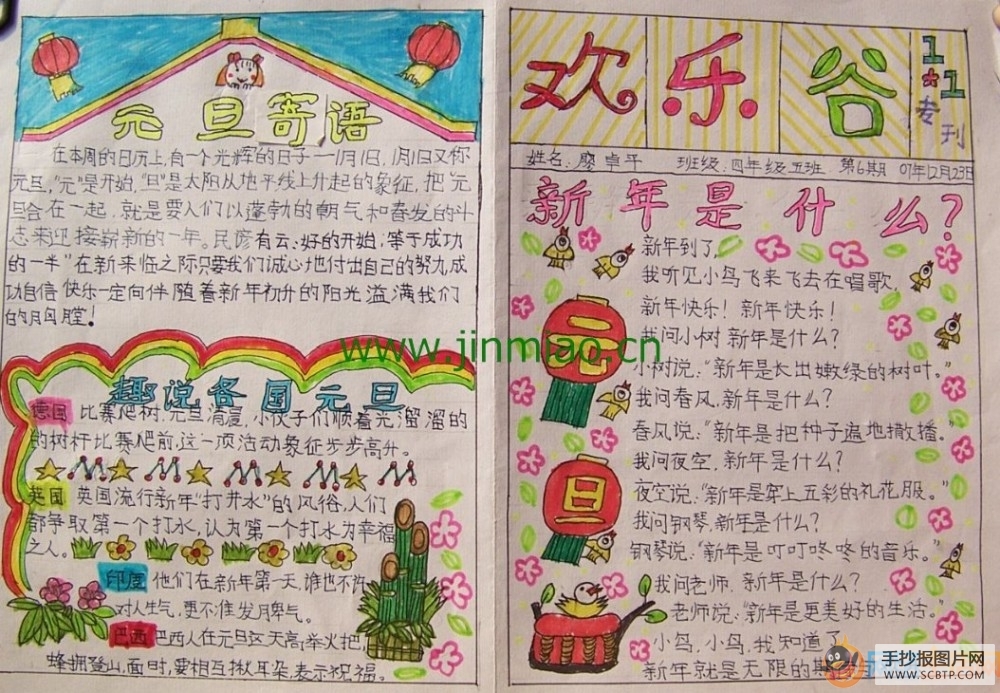 元旦寄语
在本周的日历上,有一个光辉的日子——1月1日,1月1日又称
元旦,"元"是开始,"旦"是太阳从地平线上升起的象征,把"元
旦合在一起,就是要人们以蓬勃的朝气和奋发的斗
志来迎接崭新的一年。民谚有云:好的开始,等于成功
的一半"在新来临之际只要我们诚心地付出自己的努力,成
功自信快乐一定向伴随着新年初升的阳光溢满我们
的胸膛!
www.jinmiao.cn
趣说各国元旦
德国 比赛爬树:元旦清晨,小伙子们顺着光溜溜的
的树杆比赛爬前,这一项活动象征步步高升。
英国 英国流行新年"打井水"的风俗,人们
都争取第一个打水,认为第一个打水为幸福
之人。
印度 他们在新年第一天,谁也不许
对人生气,更不准发月脾气。
巴西 巴西人在元旦这天高举火把,
蜂拥登山,面时,要相互揪耳朵,表示祝福。
欢乐谷
1★1
专刊
姓名:廖卓平 班级:四年级五班 第6期 07年12月23日
新年是什么?
新年到了,
我听见小鸟飞来飞去在唱歌,
新年快乐!新年快乐!
我问小树新年是什么?
小树说:"新年是长出嫩绿的树叶。"
我问春风,新年是什么?
春风说:"新年是把种子遍地撒播。"
我问夜空,新年是什么?
夜空说:"新年是穿上五彩的礼花服。"
我问钢琴,新年是什么?
钢琴说:"新年是叮叮咚咚的音乐。"
我问老师,新年是什么?
老师说:"新年是更美好的生活。"
小鸟,小鸟,我知道了
新年就是无限的
元
旦
手抄报图片网
WWW.SCBTP.COM